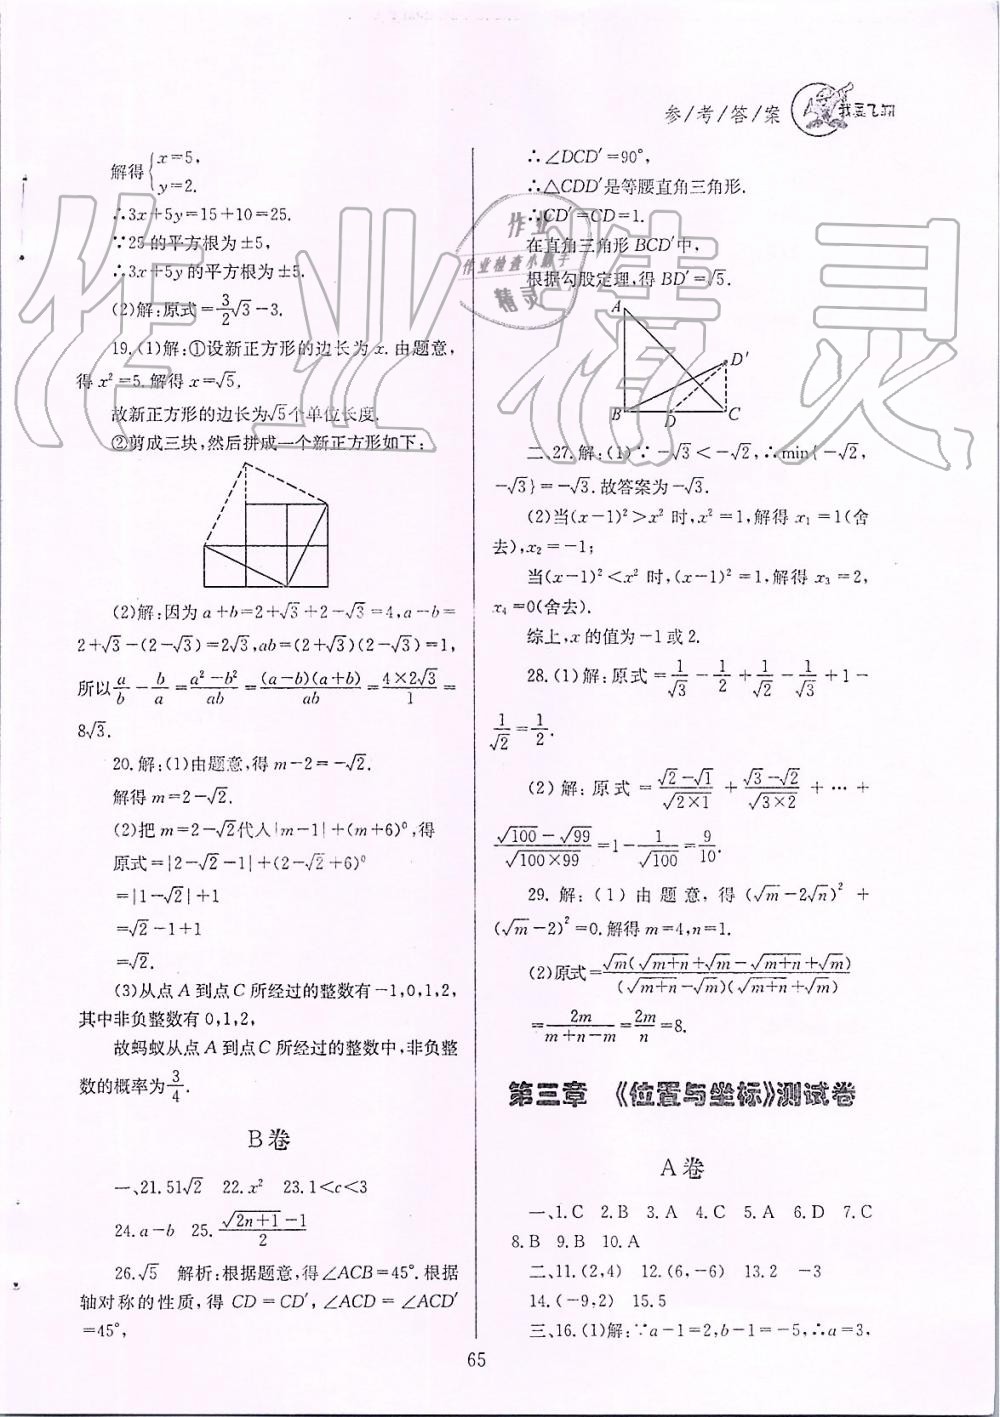 参/考/答/案
我要飞翔
解得{x=5,
y=2.
∴3x+5y=15+10=25.
∵25的平方根为±5,
∴3x+5y的平方根为±5.
(2)解:原式=3/2√3-3.
19.(1)解:①设新正方形的边长为x.由题意,
得x²=5.解得x=√5,
故新正方形的边长为√5个单位长度.
②剪成三块,然后拼成一个新正方形如下:
(2)解:因为a+b=2+√3+2-√3=4,a-b=
2+√3-(2-√3)=2√3,ab=(2+√3)(2-√3)=1,
所以a/b-b/a=(a²-b²)/ab=(a-b)(a+b)/ab=(4×2√3)/1=
8√3.
20.解:(1)由题意,得m-2=-√2.
解得m=2-√2.
(2)把m=2-√2代人|m-1|+(m+6)⁰,得
原式=|2-√2-1|+(2-√2+6)⁰
=|1-√2|+1
=√2-1+1
=√2.
(3)从点A到点C所经过的整数有-1,0,1,2,
其中非负整数有0,1,2,
故蚂蚁从点A到点C所经过的整数中,非负整
数的概率为3/4.
B卷
一、21.51√2 22.x² 23.1<c<3
24.a-b 25.(√(2n+1)-1)/2
26.√5 解析:根据题意,得∠ACB=45°.根据
轴对称的性质,得CD=CD′,∠ACD=∠ACD′
=45°,
∴∠DCD′=90°,
∴△CDD′是等腰直角三角形.
∴CD′=CD=1.
在直角三角形BCD′中,
根据勾股定理,得BD′=√5.
A
D′
B D C
二、27.解:(1)∵-√3<-√2,∴min{-√2,
-√3}=-√3.故答案为-√3.
(2)当(x-1)²>x²时,x²=1,解得x₁=1(舍
去),x₂=-1;
当(x-1)²<x²时,(x-1)²=1,解得x₃=2,
x₄=0(舍去).
综上,x的值为-1或2.
28.(1)解:原式=1/√3-1/2+1/√2-1/√3+1-
1/√2=1/2.
(2)解:原式=(√2-√1)/√(2×1)+(√3-√2)/√(3×2)+…+
(√100-√99)/√(100×99)=1-1/√100=9/10.
29.解:(1)由题意,得(√m-2√n)²+
(√m-2)²=0.解得m=4,n=1.
(2)原式=√m(√(m+n)+√m-√(m+n)+√m)/((√(m+n)-√m)(√(m+n)+√m))
=2m/(m+n-m)=2m/n=8.
第三章 《位置与坐标》测试卷
A卷
一、1.C 2.B 3.A 4.C 5.A 6.D 7.C
8.B 9.B 10.A
二、11.(2,4) 12.(6,-6) 13.2 -3
14.(-9,2) 15.5
三、16.(1)解:∵a-1=2,b-1=-5,∴a=3,
65
作业
作业检查小帮手
精灵
作业精灵